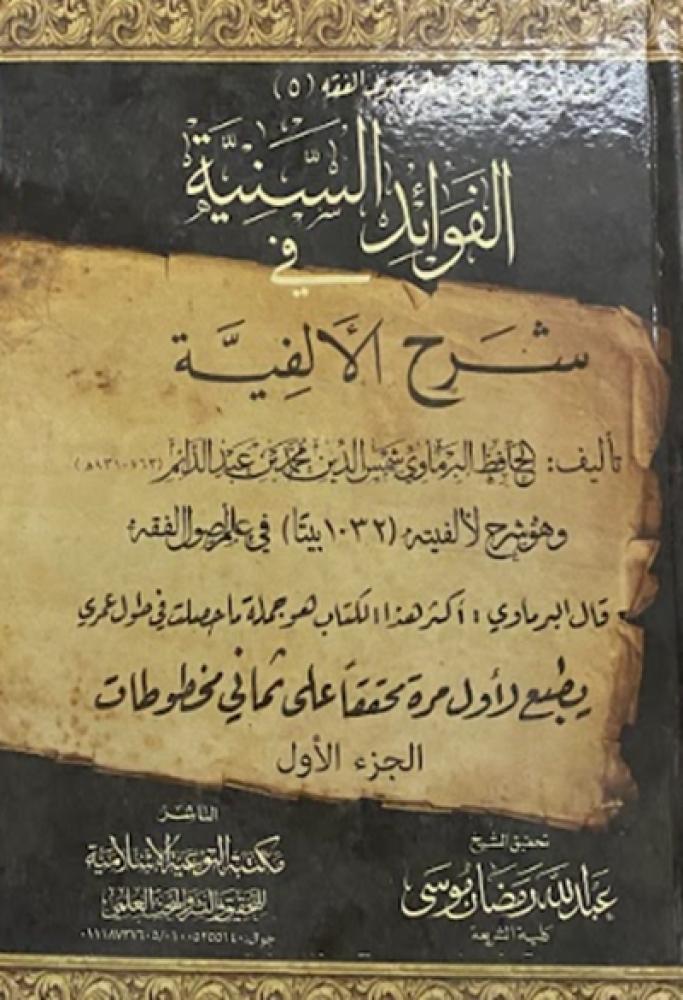 الفقه (٥)
الفَوَائِد السَّنِيَّة
في
شَرح الأَلفِيَّة
تأليف: الحافظ البرماوي شمس الدين محمد بن عبد الدائم (٧٦٣-٨٣١هـ)
وهو شرح لألفيته (١٠٣٢ بيتا) في علم أصول الفقه
قال البرماوي: أكثر هذا الكتاب هو جملة ما حصلت في طول عمري
يطبع لأول مرة محققاً على ثماني مخطوطات
الجزء الأول
الناشر
مكتبة التوعية الإسلامية
للتحقيق والنشر والبحث العلمي
جوال: ٠١١١٨٧٣٧٦٠٥/٠١٠٠٥٢٥٥١٤٠
تحقيق الشيخ
عبد الله رمضان موسى
كلية الشريعة